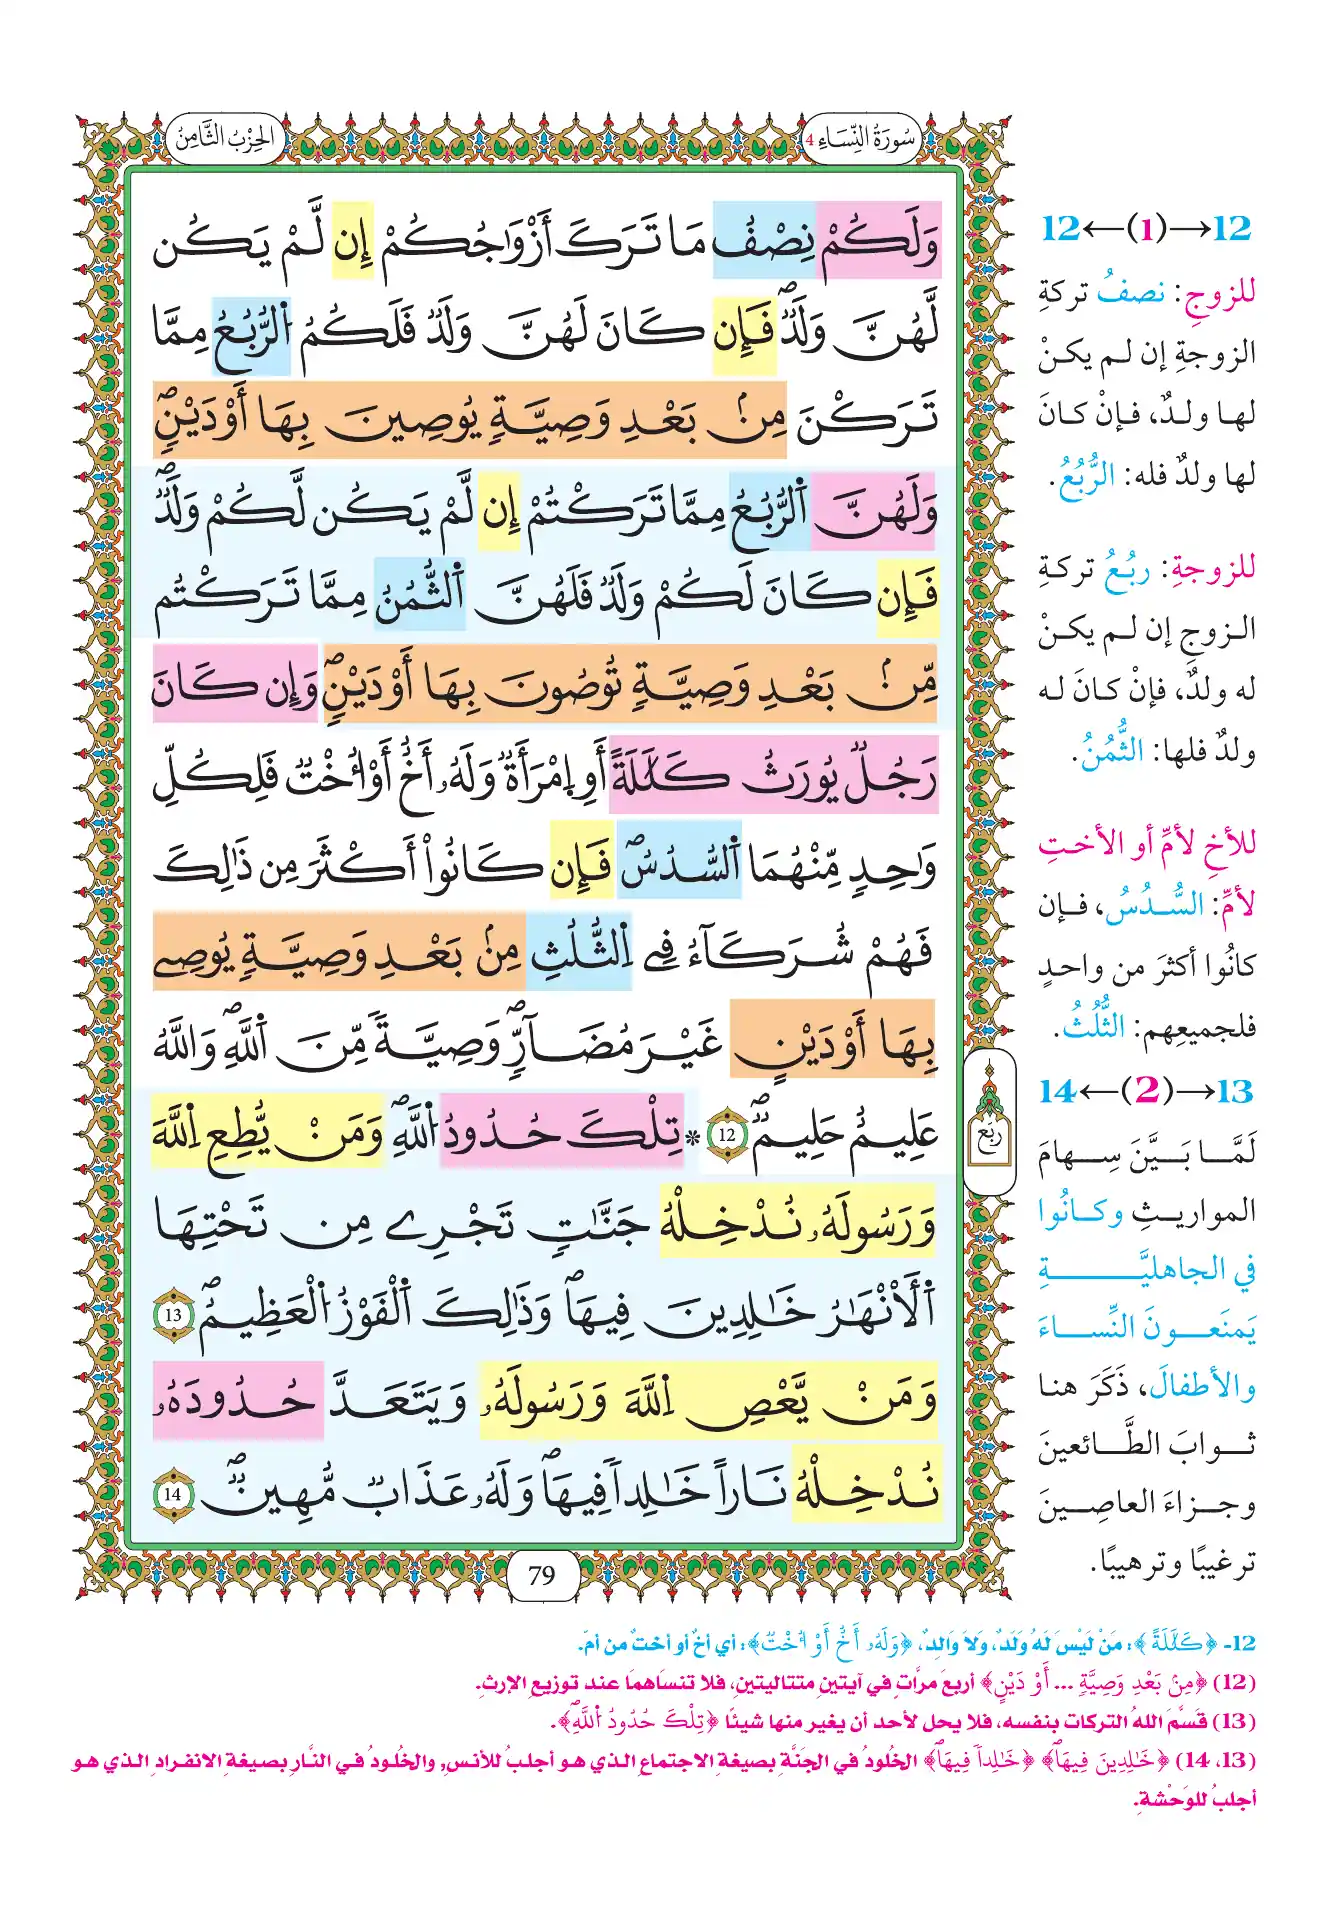 سُورَةُ النِّسَاءِ 4
الحِزْبُ الثَّامِنُ
وَلَكُمْ نِصْفُ مَا تَرَكَ أَزْوَٰجُكُمْ إِن لَّمْ يَكُن
لَّهُنَّ وَلَدٌ فَإِن كَانَ لَهُنَّ وَلَدٌ فَلَكُمُ اُ۬لرُّبُعُ مِمَّا
تَرَكْنَ مِنۢ بَعْدِ وَصِيَّةٍ يُوصِينَ بِهَا أَوْ دَيْنٍ
وَلَهُنَّ اَ۬لرُّبُعُ مِمَّا تَرَكْتُمْ إِن لَّمْ يَكُن لَّكُمْ وَلَدٌ
فَإِن كَانَ لَكُمْ وَلَدٌ فَلَهُنَّ اَ۬لثُّمُنُ مِمَّا تَرَكْتُم
مِّنۢ بَعْدِ وَصِيَّةٍ تُوصُونَ بِهَا أَوْ دَيْنٍ وَإِن كَانَ
رَجُلٌ يُورَثُ كَلَٰلَةً أَوِ اِ۪مْرَأَةٌ وَلَهُۥ أَخٌ أَوُ ا۟خْتٌ فَلِكُلِّ
وَٰحِدٍ مِّنْهُمَا اَ۬لسُّدُسُ فَإِن كَانُواْ أَكْثَرَ مِن ذَٰلِكَ
فَهُمْ شُرَكَآءُ فِے اِ۬لثُّلُثِ مِنۢ بَعْدِ وَصِيَّةٍ يُوصِے
بِهَا أَوْ دَيْنٍ غَيْرَ مُضَآرٍّ وَصِيَّةً مِّنَ اَ۬للَّهِ وَاللَّهُ
عَلِيمٌ حَلِيمٌ 12 * تِلْكَ حُدُودُ اُ۬للَّهِ وَمَنْ يُّطِعِ اِ۬للَّهَ
وَرَسُولَهُۥ نُدْخِلْهُ جَنَّٰتٍ تَجْرِے مِن تَحْتِهَا
اَ۬لْأَنْهَٰرُ خَٰلِدِينَ فِيهَا وَذَٰلِكَ اَ۬لْفَوْزُ اُ۬لْعَظِيمُ 13
وَمَنْ يَّعْصِ اِ۬للَّهَ وَرَسُولَهُۥ وَيَتَعَدَّ حُدُودَهُۥ
نُدْخِلْهُ نَاراً خَٰلِداً فِيهَا وَلَهُۥ عَذَابٌ مُّهِينٌ 14
79
رُبَع
12←(1)→12
للزوجِ: نصفُ تركةِ
الزوجةِ إن لم يكنْ
لها ولدٌ، فإنْ كانَ
لها ولدٌ فله: الرُّبُعُ.
للزوجةِ: ربُعُ تركةِ
الزوجِ إن لم يكنْ
له ولدٌ، فإنْ كانَ له
ولدٌ فلها: الثُّمُنُ.
للأخِ لأمِّ أو الأختِ
لأمِّ: السُّدُسُ، فإن
كانُوا أكثرَ من واحدٍ
فلجميعِهم: الثُّلُثُ.
14←(2)→13
لَمَّا بَيَّنَ سِهامَ
المواريثِ وكانُوا
في الجاهليَّةِ
يَمنَعونَ النِّساءَ
والأطفالَ، ذَكَرَ هنا
ثوابَ الطَّائعينَ
وجزاءَ العاصِينَ
ترغيبًا وترهيبًا.
12- ﴿كَلَٰلَةً﴾: مَنْ لَيْسَ لَهُ وَلَدٌ، وَلاَ وَالِدٌ، ﴿وَلَهُۥ أَخٌ أَوُ ا۟خْتٌ﴾: أي أخٌ أو أختٌ من أمّ.
(12) ﴿مِنۢ بَعْدِ وَصِيَّةٍ ... أَوْ دَيْنٍ﴾ أربعَ مرَّاتٍ في آيتينِ متتاليتينِ، فلا تنسَاهمَا عند توزيعِ الإرثِ.
(13) قَسَّمَ اللهُ التركات بنفسه، فلا يحل لأحد أن يغير منها شيئًا ﴿تِلْكَ حُدُودُ اُ۬للَّهِ﴾.
(13، 14) ﴿خَٰلِدِينَ فِيهَا﴾ ﴿خَٰلِداً فِيهَا﴾ الخلودُ في الجَنَّةِ بصيغةِ الاجتماعِ الذي هو أجلبُ للأنسِ, والخُلودُ في النَّارِ بصيغةِ الانفرادِ الذي هو
أجلبُ للوَحْشةِ.